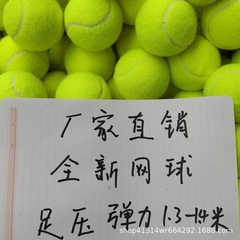 厂家直销
全新网球
足压 弹力 1.3-14米
shop41314wr664292.1688.com